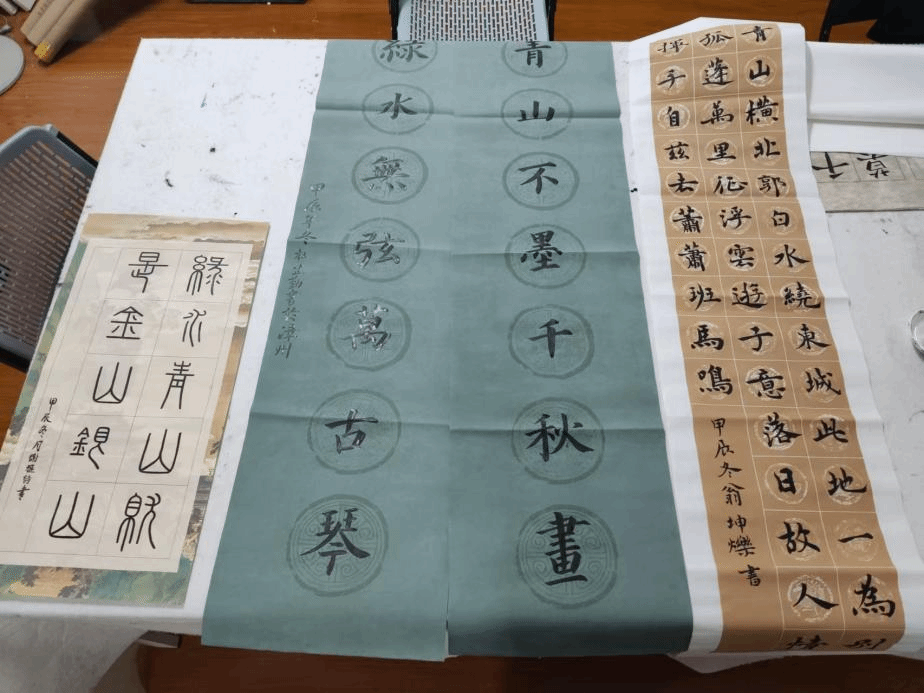 青山橫北郭白水繞東城此地一為別
孤蓬萬里征浮雲遊子意落日故人情
揮手自茲去蕭蕭班馬鳴
甲辰冬翁坤爍書
青山不墨千秋畫
綠水無弦萬古琴
甲辰年冬杜勤書於漳州
綠水青山就
是金山銀山
甲辰冬月謝書